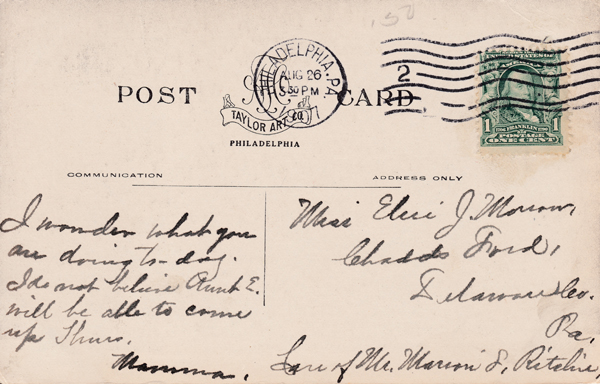 .150
PHILADELPHIA. PA.
AUG 26
3 30 PM
1907
2
POST CARD
TAYLOR ART CO
PHILADELPHIA
UNITED STATES OF
AMERICA
1 FRANKLIN 1
POSTAGE
ONE CENT
COMMUNICATION
ADDRESS ONLY
I wonder what you
are doing to-day.
I do not believe Aunt E.
will be able to come
up Thurs.
Mamma.
Miss Elsie J. Morrow,
Chadds Ford,
Delaware Co.
Pa.
Care of Mr. Marion S. Ritchie,